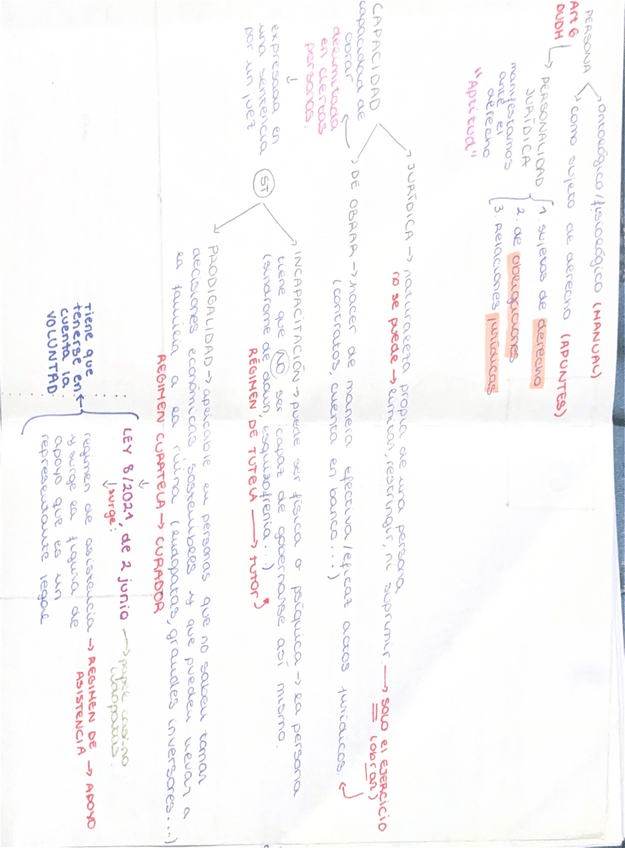 PERSONA
ontológico/fisiológico (MANUAL)
como sujeto de derecho (APUNTES)
Art 6
DUDH
PERSONALIDAD
JURÍDICA
manifestarnos
ante el
derecho
"Aptitud"
1. sujetos de derecho
2. de obligaciones
3. Relaciones jurídicas
CAPACIDAD
JURÍDICA → naturaleza propia de una persona
no se puede → limitar, restringir, ni suprimir → SOLO El EJERCICIO
(obrar)
DE OBRAR → hacer de manera efectiva/eficaz actos jurídicos.
(contratos, cuenta en banco...)
capacidad de
obrar
delimitada
en ciertas
personas.
↓
expresada en
una sentencia
por un juez
ST
INCAPACITACIÓN → puede ser física o psíquica → la persona
tiene que NO ser capaz de gobernarse así mismo.
(síndrome de down, esquizofrenia...)
RÉGIMEN DE TUTELA → tutor
PRODIGALIDAD → aplicable en personas que no saben tomar
decisiones económicas, sostenibles y que pueden llevar a
la familia a la ruina (ludópatas, grandes inversores...)
RÉGIMEN CURATELA → CURADOR
LEY 8/2021, de 2 junio →
casino
ludópatas.
↓ surge:
régimen de asistencia → RÉGIMEN DE → APOYO
ASISTENCIA
y surge la figura de
apoyo que es un
representante legal
Tiene que
tenerse en
cuenta la
VOLUNTAD